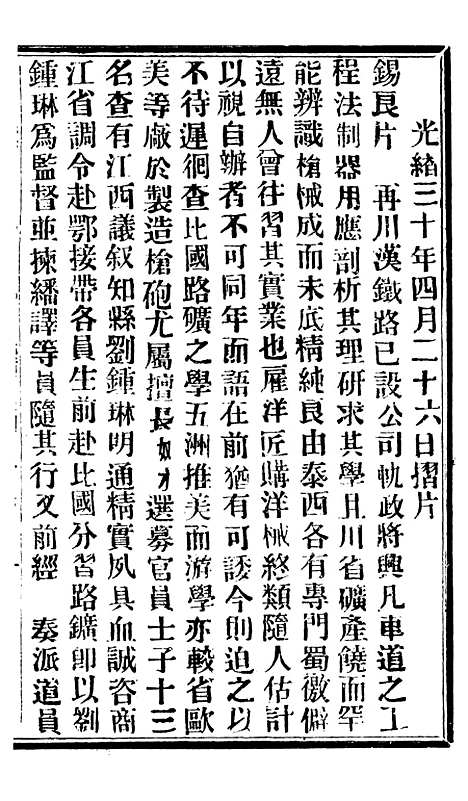 光緒三十年四月二十六日摺片
錫良片　再川漢鐵路已設公司軌政將興凡車道之工
程法制器用應剖析其理研求其學且川省礦產饒而罕
能辨識槍械成而未底精純良由泰西各有專門蜀徼僻
遠無人曾往習其實業也雇洋匠購洋械終類隨人估計
以視自辦者不可同年而語在前猶有可諉今則迫之以
不待遲徊查比國路礦之學五洲推美而游學亦較省歐
美等廠於製造槍砲尤屬擅長　選募官員士子十三
名查有江西議叙知縣劉鍾琳明通精實夙具血誠咨商
江省調令赴鄂接帶各員生前赴比國分習路鑛卽以劉
鍾琳爲監督並揀繙譯等員隨其行又前經　奏派道員